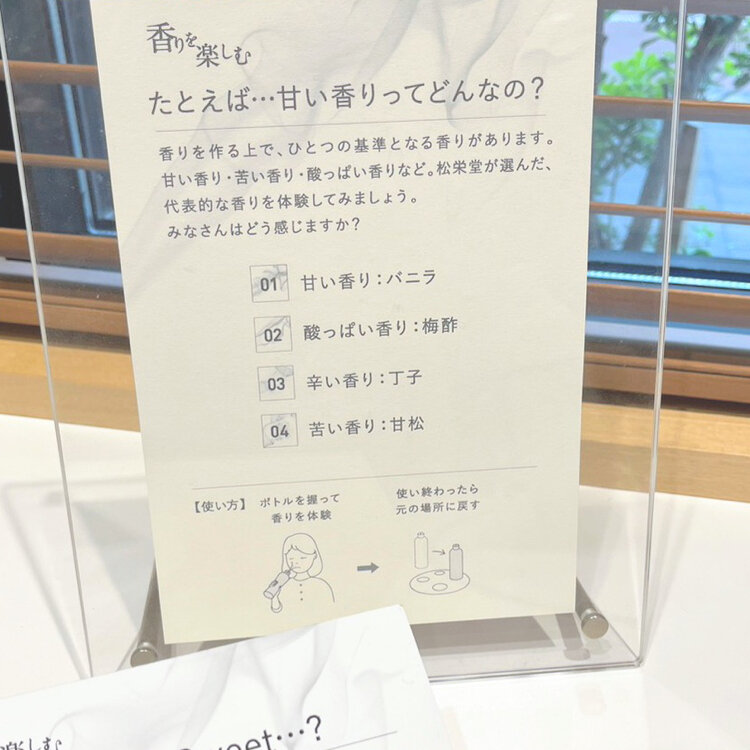 香りを
楽しむ
たとえば…甘い香りってどんなの？
香りを作る上で、ひとつの基準となる香りがあります。
甘い香り・苦い香り・酸っぱい香りなど。松栄堂が選んだ、
代表的な香りを体験してみましょう。
みなさんはどう感じますか？
01 甘い香り：バニラ
02 酸っぱい香り：梅酢
03 辛い香り：丁子
04 苦い香り：甘松
【使い方】 ボトルを握って
香りを体験
使い終わったら
元の場所に戻す
楽しむ
…?